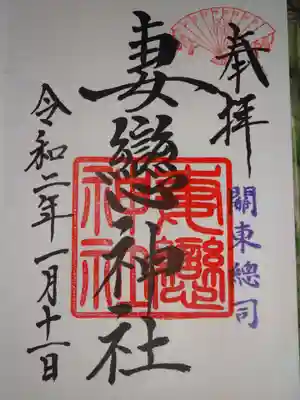 奉拝
關東總司
妻戀神社
妻戀神社
令和二年一月十一日